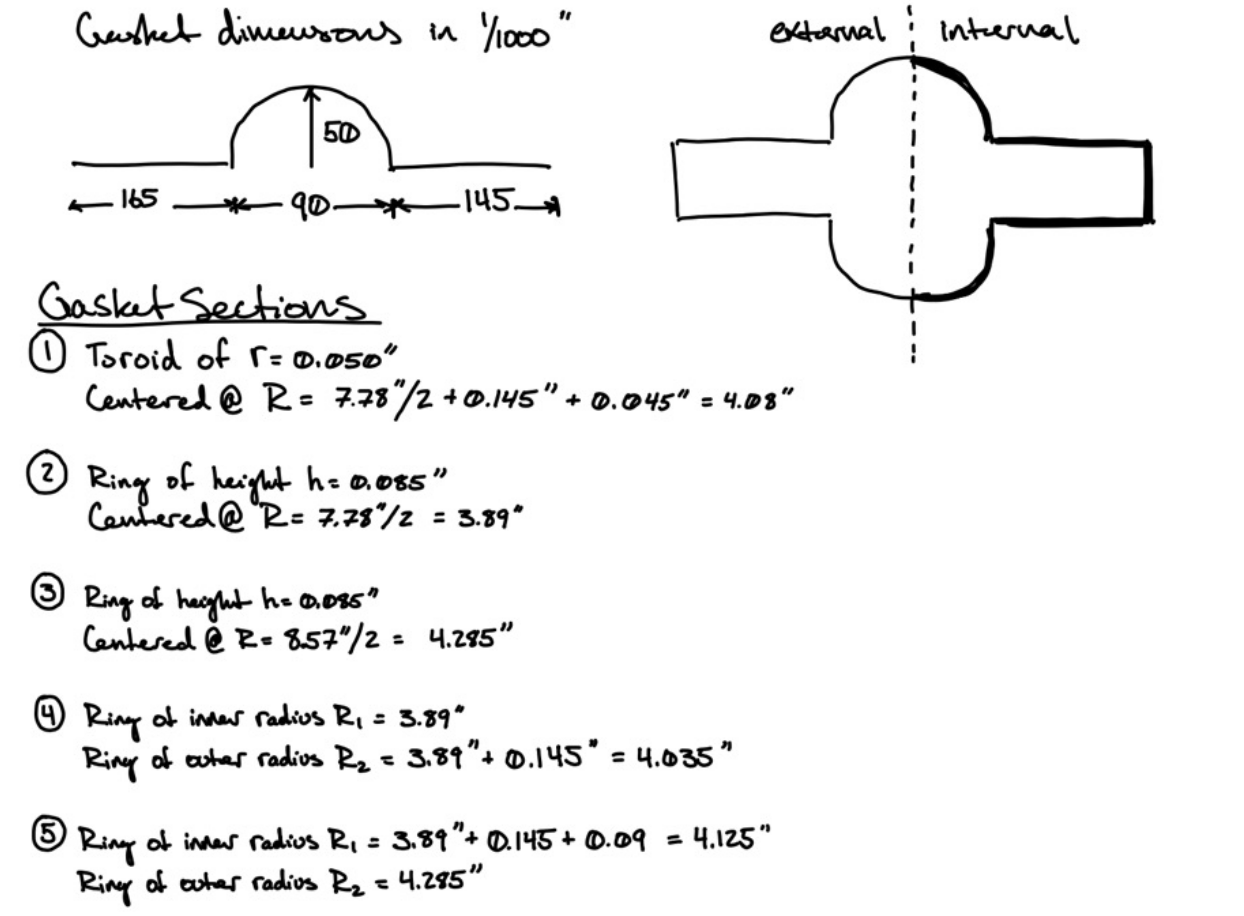 Gasket dimensions in 1/1000"
external internal
50
165 90 145
Gasket Sections
① Toroid of r= 0.050"
Centered @ R = 7.78"/2 + 0.145" + 0.045" = 4.08"
② Ring of height h= 0.085"
Centered @ R= 7.78"/2 = 3.89"
③ Ring of height h= 0.085"
Centered @ R= 8.57"/2 = 4.285"
④ Ring of inner radius R₁ = 3.89"
Ring of outer radius R₂ = 3.89"+ 0.145" = 4.035"
⑤ Ring of inner radius R₁ = 3.89"+ 0.145 + 0.09 = 4.125"
Ring of outer radius R₂ = 4.285"